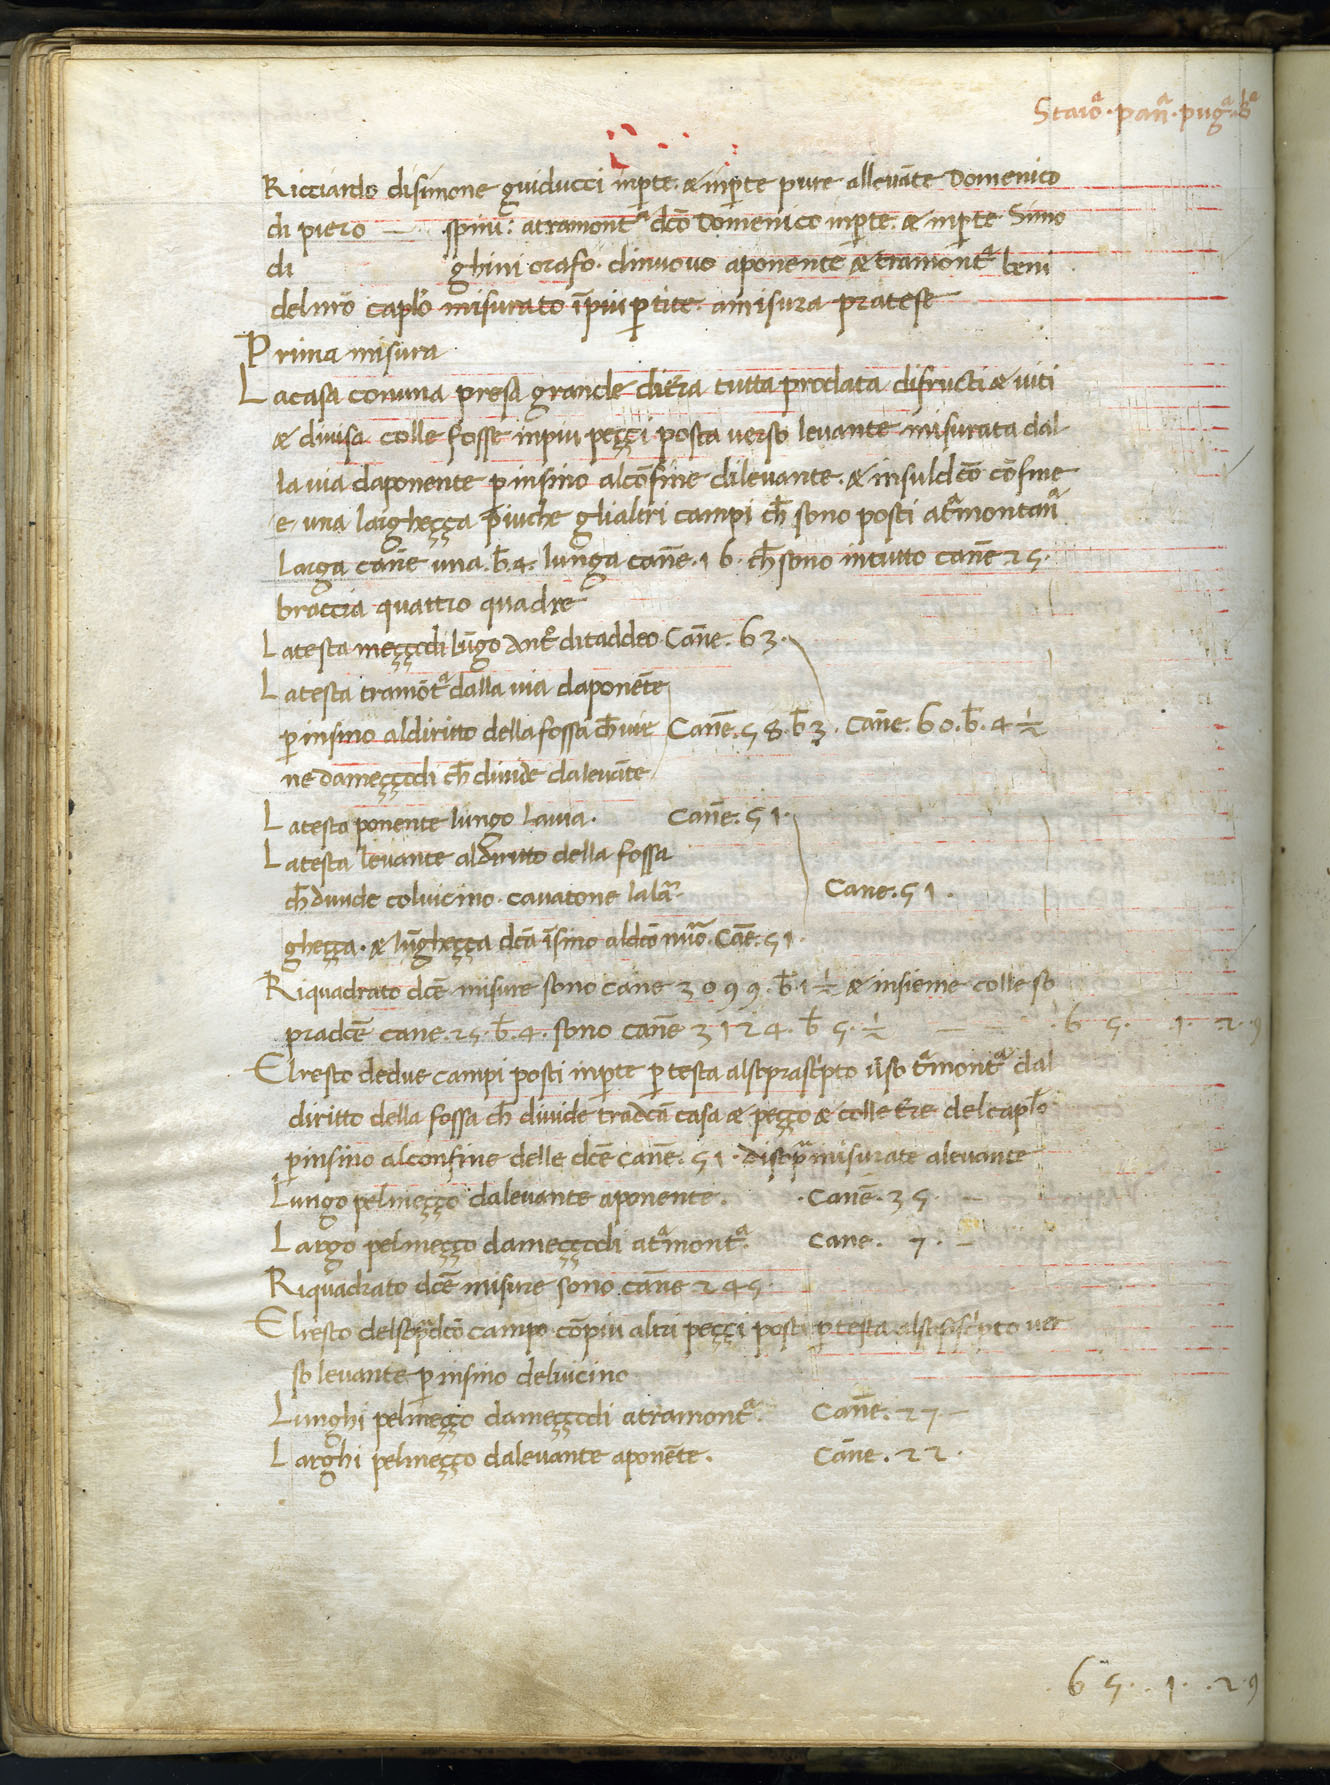 Staioª · panª · pugª · bª
Ricciardo disimone guiducci inp̄te · & inp̄te pure allevāte Domenico
di piero — spini: atramontª dc̄o Domenico inp̄te · & inp̄te Simo
di ghini orafo · dinuovo aponente & tramontª beni
delnr̄o caplō misurato īpiu p̄tite · amisura pratese
Prima misura
Lacasa conuna presa grande dit̄ra tutta prodata difructi & viti
& divisa colle fosse inpiu peççi posta verso levante misurata dal
lavia daponente p̄insino alcōfine dilevante · & insuldc̄o cōfine
e una larghęçça piuche glialtri campi ch̄ sono posti atªmontanª
Larga cāne una · b̄ · 4 · lunga cāne · 16 · ch̄ sono intutto cāne 25 ·
braccia quattro quadre
Latesta meççodi lūgo Antº ditaddeo · Cāne · 63 ·
Latesta tramōtª dalla via daponēte
p̄insino aldiritto della fossa ch̄ vie Cāne · 58 · b̄ 3 · Cāne · 60 · b̄ · 4 ½
ne dameççodi ch̄ divide dalevāte
Latesta ponente lungo lavia · Cāne · 51 ·
Latesta levante aldiritto della fossa
ch̄ divide colvicino · cavatone lalar
ghęçça · & lūghęçça dc̄a īsino aldc̄o muro · Cāe · 51 · Cane · 51 ·
Riquadrato dc̄e misure sono cāne 3099 · b̄ · 1 ½ & insieme colle so
pradc̄e cane · 25 · b̄ · 4 · sono cāne 3124 · b̄ 5 · ½ — — · 65 · 1 · 2 · 9
Elresto dedue campi posti inp̄te p̄ testa alsoprascīpto v̄so tªmontª dal
diritto della fossa ch̄ divide tradc̄a casa & peçço & colle t̄re delcaplō
p̄insino alconfine delle dc̄e cāne · 51 · disopª misurate alevante
Lungo pelmeçço dalevante aponente · · Cāne · 35 · —
Largo pelmeçço dameççodi atªmontª · Cane · 7 · —
Riquadrato dc̄e misure sono cāne 245
Elresto delsopªdc̄o campo cōpiu altri peççi posti p̄ testa alsopªscīpto ver
so levante p̄insino delvicino
Lunghi pelmeçço dameççodi atramontª · Cāne · 27 —
Larghi pelmeçço dalevante aponēte · Cāne · 22 ·
· 65 · · 1 · · 2 · 9